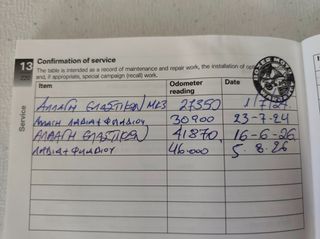 13
Confirmation of service
The table is intended as a record of maintenance and repair work, the installation of
and, if appropriate, special campaign (recall) work.
Item Odometer reading Date
ΑΛΛΑΓΗ ΕΛΑΣΤΙΚΩΝ 27350
ΑΛΛΑΓΗ ΛΑΔΙΑ + ΦΙΛΔΙΟΥ 30900 23-7-24
ΑΛΛΑΓΗ ΕΛΑΣΤΙΚΩΝ 41870 16-6-26
ΛΑΔΙΑ + ΦΙΛΔΙΟΥ 46.000 5.8.26
Service